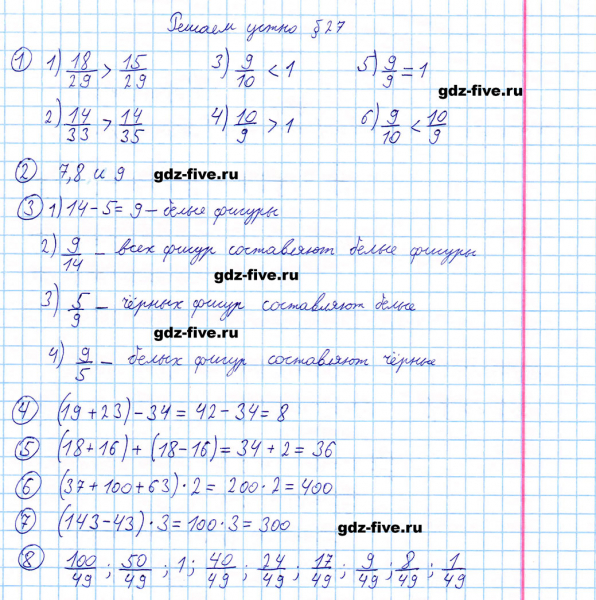 Решаем устно §27
① 1) 18/29 > 15/29 3) 9/10 < 1 5) 9/9 = 1
gdz-five.ru
2) 14/33 > 14/35 4) 10/9 > 1 6) 9/10 < 10/9
② 7,8 и 9 gdz-five.ru
③ 1) 14-5=9 – белые фигуры
2) 9/14 – всех фигур составляют белые фигуры
gdz-five.ru
3) 5/9 – чёрных фигур составляют белые
gdz-five.ru
4) 9/5 – белых фигур составляют чёрные
④ (19+23)-34=42-34=8
⑤ (18+16)+(18-16)=34+2=36
⑥ (37+100+63)·2=200·2=400
⑦ (143-43)·3=100·3=300 gdz-five.ru
⑧ 100/49; 50/49; 1; 40/49; 24/49; 17/49; 9/49; 8/49; 1/49